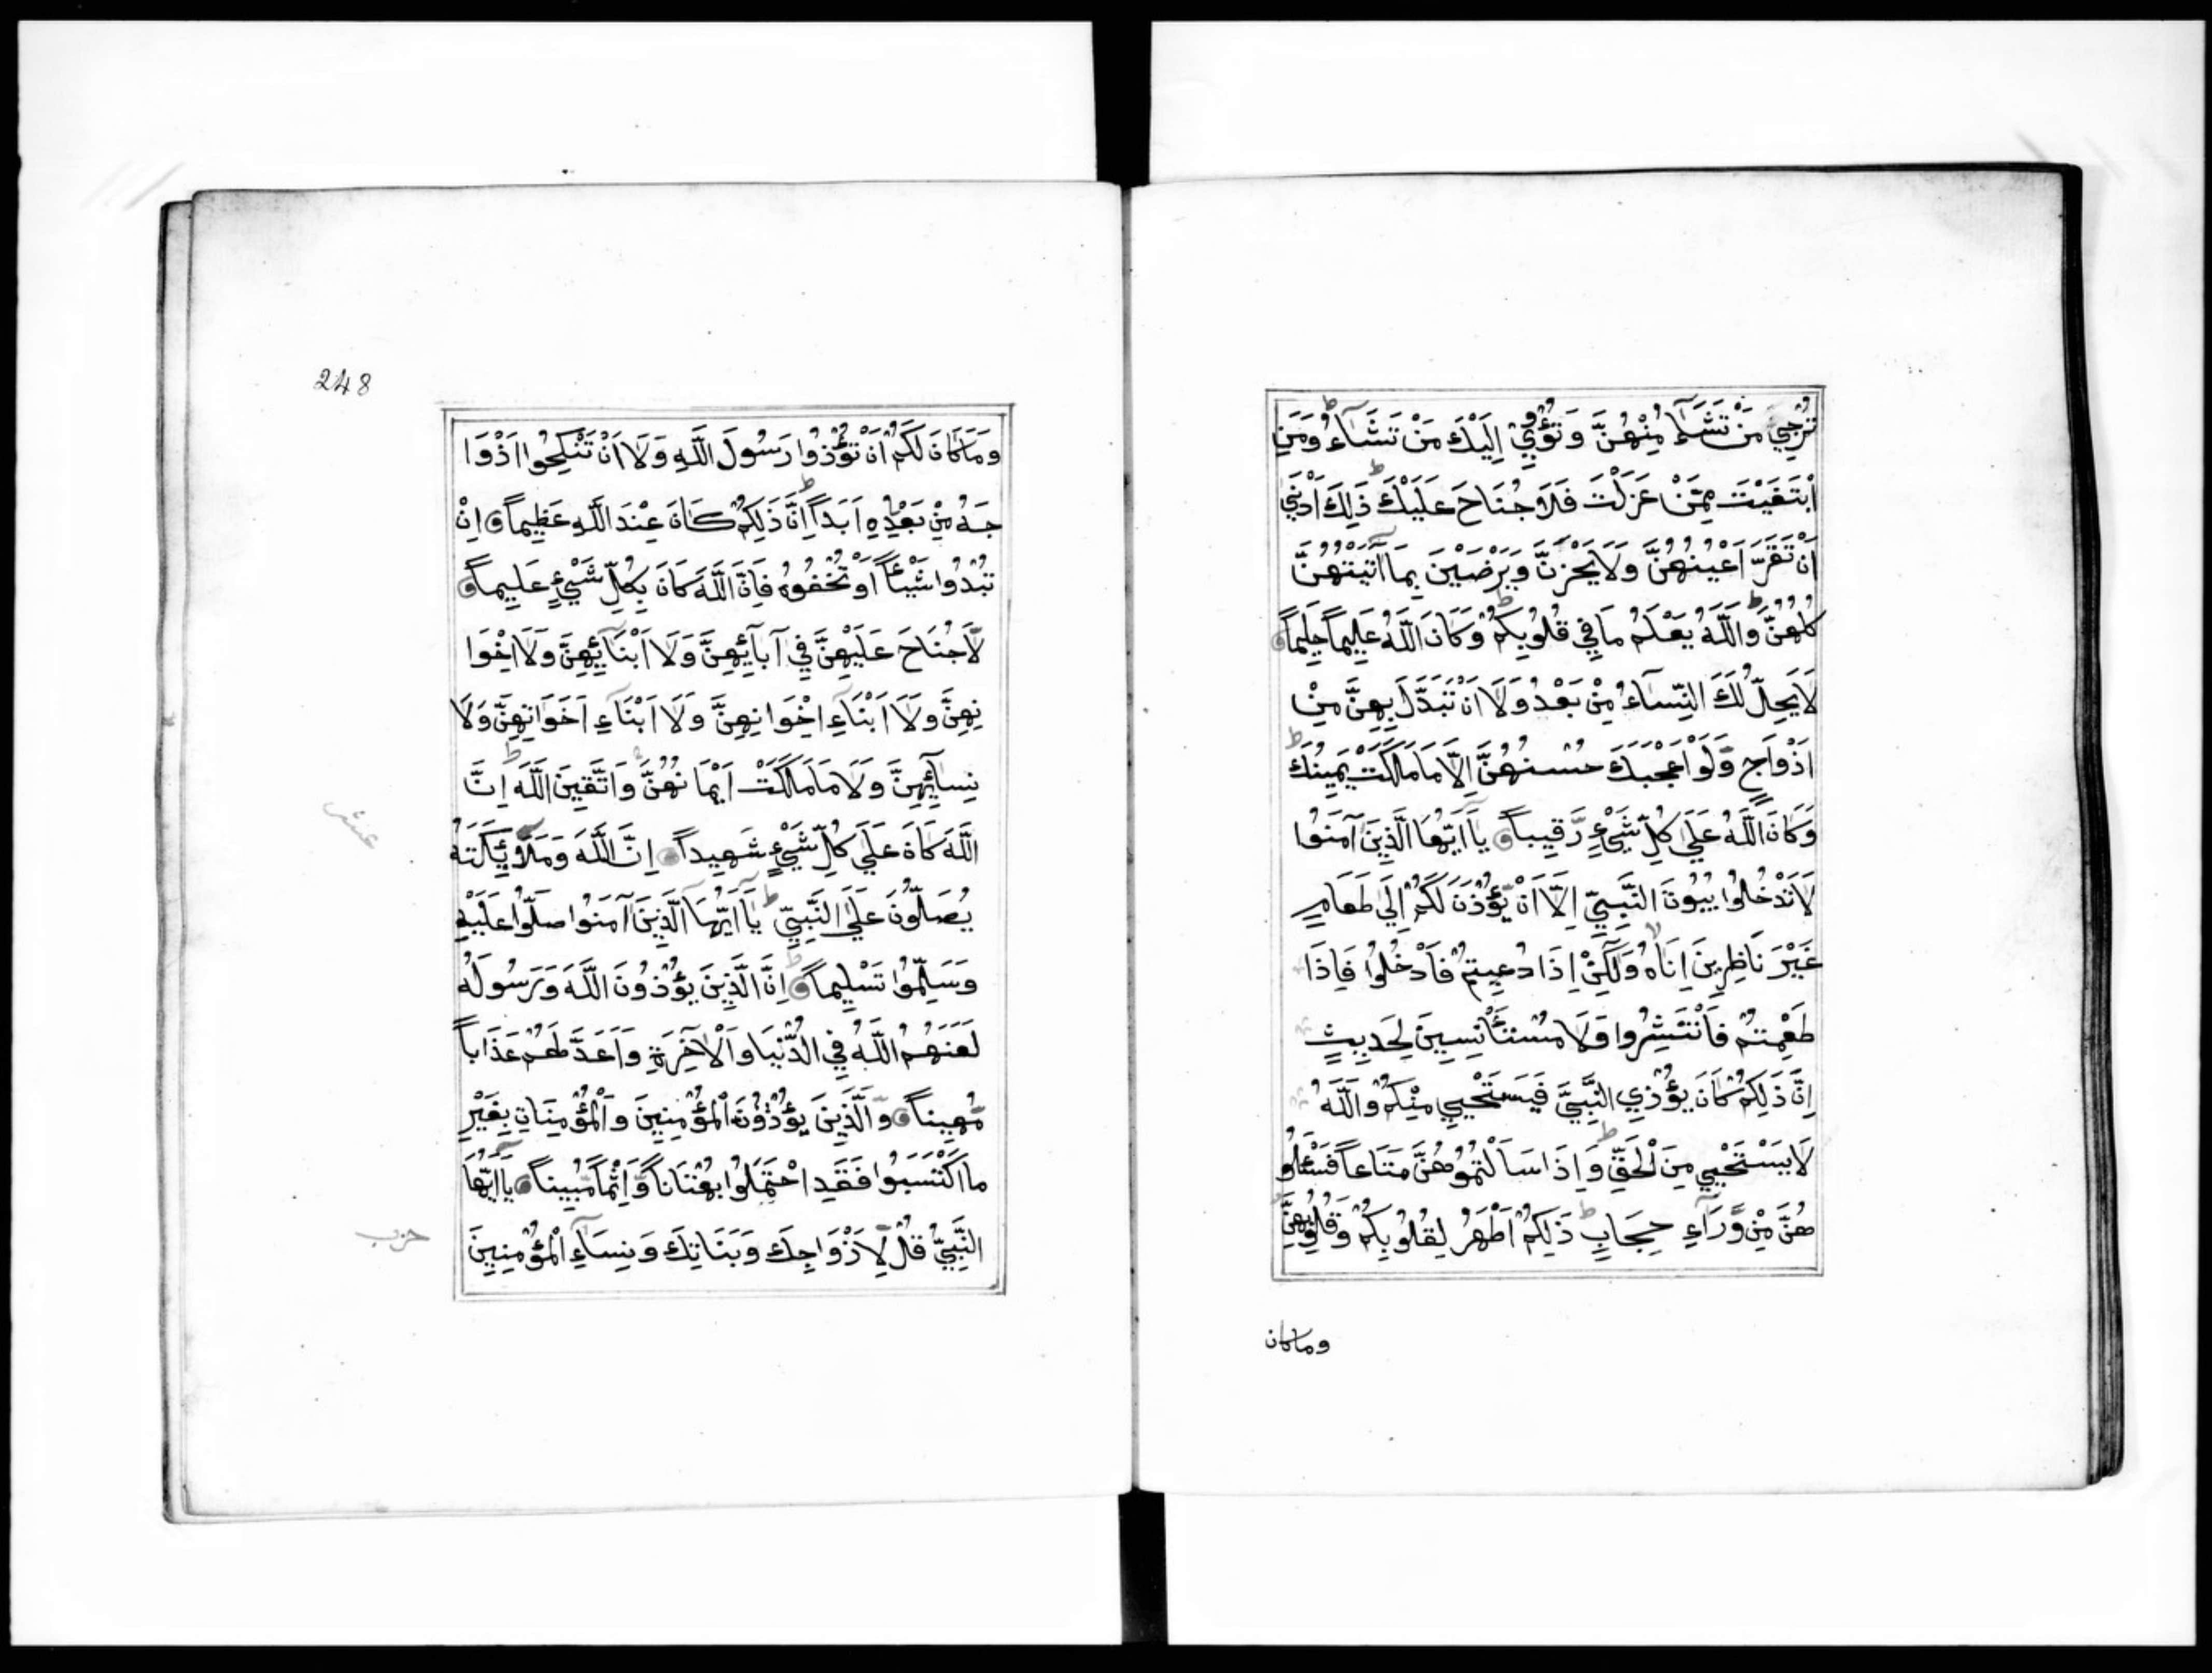 تُرْجِي مَنْ تَشَآءُ مِنْهُنَّ وَتُؤْوِي اِلَيْكَ مَنْ تَشَآءُ وَمَنِ
ابْتَغَيْتَ مِمَّنْ عَزَلْتَ فَلَا جُنَاحَ عَلَيْكَ ذَلِكَ اَدْنَي
اَنْ تَقَرَّ اَعْيُنُهُنَّ وَلَا يَحْزَنَّ وَيَرْضَيْنَ بِمَا آتَيْتَهُنَّ
كُلُّهُنَّ وَاللَّهُ يَعْلَمُ مَا فِي قُلُوبِكُمْ وَكَانَ اللَّهُ عَلِيماً حَلِيماً
لَا يَحِلُّ لَكَ النِّسَآءُ مِنْ بَعْدُ وَلَا اَنْ تَبَدَّلَ بِهِنَّ مِنْ
اَزْوَاجٍ وَّلَوْ اَعْجَبَكَ حُسْنُهُنَّ اِلَّا مَا مَلَكَتْ يَمِينُكَ
وَكَانَ اللَّهُ عَلَي كُلِّ شَيْءٍ رَّقِيباً يَا اَيُّهَا الَّذِينَ آمَنُوا
لَا تَدْخُلُوا بُيُوتَ النَّبِيِّ اِلَّا اَنْ يُّؤْذَنَ لَكُمْ اِلَي طَعَامٍ
غَيْرَ نَاظِرِينَ اِنَاهُ وَلَكِنْ اِذَا دُعِيتُمْ فَادْخُلُوا فَاِذَا
طَعِمْتُمْ فَانْتَشِرُوا وَلَا مُسْتَأْنِسِينَ لِحَدِيثٍ
اِنَّ ذَلِكُمْ كَانَ يُؤْذِي النَّبِيَّ فَيَسْتَحْيِي مِنْكُمْ وَاللَّهُ
لَا يَسْتَحْيِي مِنَ الْحَقِّ وَاِذَا سَاَلْتُمُوهُنَّ مَتَاعاً فَسْئَلُو
هُنَّ مِنْ وَّرَآءِ حِجَابٍ ذَلِكُمْ اَطْهَرُ لِقُلُوبِكُمْ وَقُلُوبِهِنَّ
وماكان
248
وَمَا كَانَ لَكُمْ اَنْ تُؤْذُوا رَسُولَ اللَّهِ وَلَا اَنْ تَنْكِحُوا اَزْوَا
جَهُ مِنْ بَعْدِهِ اَبَداً اِنَّ ذَلِكُمْ كَانَ عِنْدَ اللَّهِ عَظِيماً اِنْ
تُبْدُوا شَيْئاً اَوْ تُخْفُوهُ فَاِنَّ اللَّهَ كَانَ بِكُلِّ شَيْءٍ عَلِيماً
لَا جُنَاحَ عَلَيْهِنَّ فِي آبَآئِهِنَّ وَلَا اَبْنَآئِهِنَّ وَلَا اِخْوَا
نِهِنَّ وَلَا اَبْنَآءِ اِخْوَانِهِنَّ وَلَا اَبْنَآءِ اَخَوَاتِهِنَّ وَلَا
نِسَآئِهِنَّ وَلَا مَا مَلَكَتْ اَيْمَانُهُنَّ وَاتَّقِينَ اللَّهَ اِنَّ
عشر
اللَّهَ كَانَ عَلَي كُلِّ شَيْءٍ شَهِيداً اِنَّ اللَّهَ وَمَلَآئِكَتَهُ
يُصَلُّونَ عَلَي النَّبِيِّ يَا اَيُّهَا الَّذِينَ آمَنُوا صَلُّوا عَلَيْهِ
وَسَلِّمُوا تَسْلِيماً اِنَّ الَّذِينَ يُؤْذُونَ اللَّهَ وَرَسُولَهُ
لَعَنَهُمُ اللَّهُ فِي الدُّنْيَا وَالْآخِرَةِ وَاَعَدَّ لَهُمْ عَذَاباً
مُّهِيناً وَالَّذِينَ يُؤْذُونَ الْمُؤْمِنِينَ وَالْمُؤْمِنَاتِ بِغَيْرِ
مَا اكْتَسَبُوا فَقَدِ احْتَمَلُوا بُهْتَاناً وَّاِثْماً مُّبِيناً يَا اَيُّهَا
النَّبِيُّ قُلْ لِّاَزْوَاجِكَ وَبَنَاتِكَ وَنِسَآءِ الْمُؤْمِنِينَ
حزب